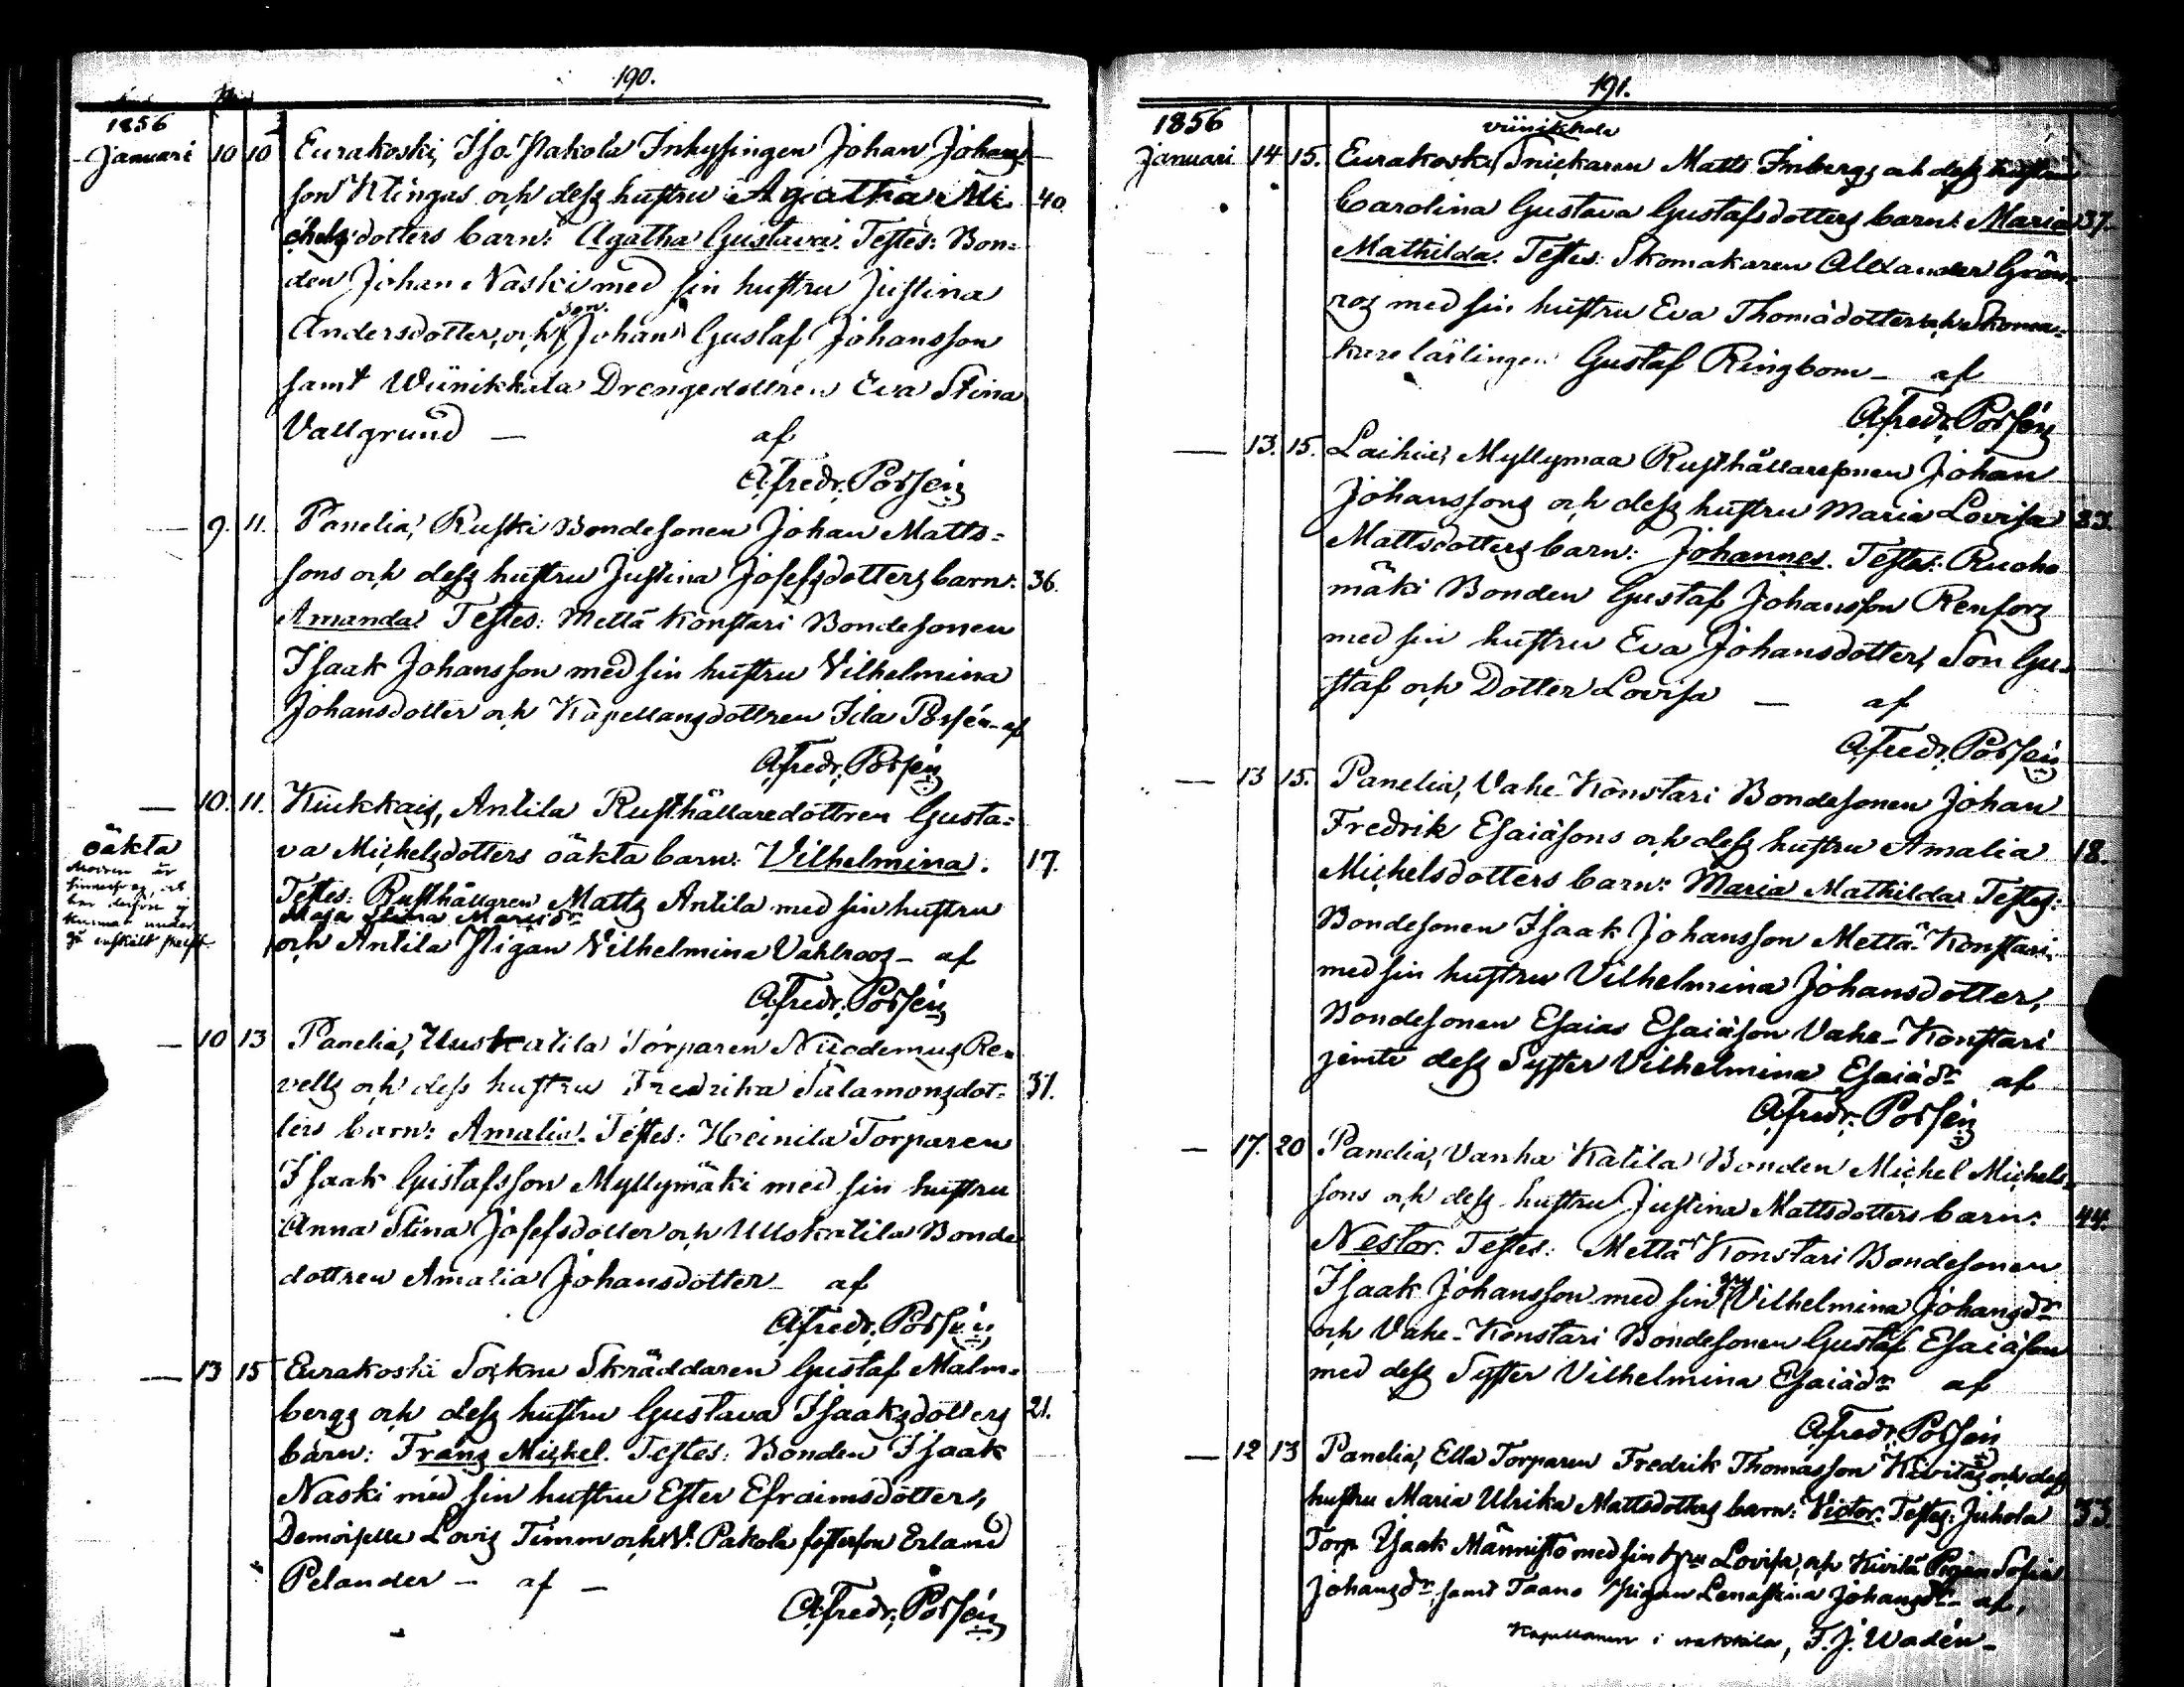 190.
1856
Januari 10 10 Eurakoski, Iso Pakola Inhysingen Johan Johans-
son Klingas och dess hustru Agatha Mi- 40.
chelsdotters barn: Agatha Gustava. Testes: Bon-
den Johan Naski med sin hustru Justina
Andersdotter, och son. Johan Gustaf Johansson
samt Wiinikkala Drengedottren Eva Stina
Vallgrund — af
A. Fredr. Porsén
— 9. 11. Panelia, Ruski Bondesonen Johan Matts-
sons och dess hustru Justina Josefsdotters barn: 36.
Amanda. Testes: Mettä Konstari Bondesonen
Isaak Johansson med sin hustru Vilhelmina
Johansdotter och Kapellansdottren Ida Porsén - af
A. Fredr. Porsén
— 10. 11. Kiukkais, Antila Rusthållaredottren Gusta-
oäkta va Michelsdotters oäkta barn: Vilhelmina. 17.
Modren är
Testes: Rusthållaren Matts Antila med sin hustru
Maja Stina Mariædr
och Antila Pigan Vilhelmina Vahlroos - af
enskilt skrift
A. Fredr. Porsén
— 10 13 Panelia, Uuskatila Torparen Nicodemus Re-
vells och dess hustru Fredrika Salamonsdot- 31.
ters barn: Amalia. Testes: Heinila Torparen
Isaak Gustafsson Myllymäki med sin hustru
Anna Stina Josefsdotter och Uuskatila Bonde
dottren Amalia Johansdotter - af
A. Fredr. Porsén
— 13 15 Eurakoski Sockne Skräddaren Gustaf Malm-
bergs och dess hustru Gustava Isaaksdotters 21.
barn: Frans Michel. Testes: Bonden Isaak
Naski med sin hustru Ester Efraimsdotter,
Demoiselle Lovis Timm och W. Pakola fosterson Erland
Pelander — af —
A. Fredr. Porsén
191.
1856
viinikkala
Januari 14 15. Eurakoski, Snickaren Matts Inbergs och dess hustru
Carolina Gustava Gustafsdotters barn: Maria 37.
Mathilda. Testes: Skomakaren Alexander Grön-
ros med sin hustru Eva Thomædotter och Skoma-
kare lärlingen Gustaf Ringbom — af
A. Fredr. Porsén
— 13. 15. Laihia, Myllymaa Rusthållaresonen Johan
Johanssons och dess hustru Maria Lovisa 23.
Mattsdotters barn: Johannes. Testes: Ruoho
mäki Bonden Gustaf Johansson Renfors
med sin hustru Eva Johansdotter, Son Gu-
staf och Dotter Lovisa — af
A. Fredr. Porsén
— 13 15. Panelia, Vahe-Konstari Bondesonen Johan
Fredrik Esaiæsons och dess hustru Amalia 18.
Michelsdotters barn: Maria Mathilda. Testes:
Bondesonen Isaak Johansson Mettä-Konstari
med sin hustru Vilhelmina Johansdotter,
Bondesonen Esaias Esaiæson Vahe-Konstari
jemte dess Syster Vilhelmina Esaiædr af
A. Fredr. Porsén
— 17. 20 Panelia, Vanha Katila Bonden Michel Michels-
sons och dess hustru Justina Mattsdotters barn: 44.
Nestor. Testes: Mettä Konstari Bondesonen
Isaak Johansson med sin Vilhelmina Johansdr
och Vahe-Konstari Bondesonen Gustaf Esaiæson
med dess Syster Vilhelmina Esaiædr af
A. Fredr. Porsén
— 12 13 Panelia, Ella Torparen Fredrik Thomasson Kivitäs och dess
hustru Maria Ulrika Mattsdotters barn: Victor. Testes: Juhola 33.
Torp. Isaak Männistö med sin hru Lovisa, och Kivitä Pigan Sofia
Johansdr samt Taano Pigan Lenastina Johansdr - af,
Kapellanen i Nakkila, F. J. Wadén -